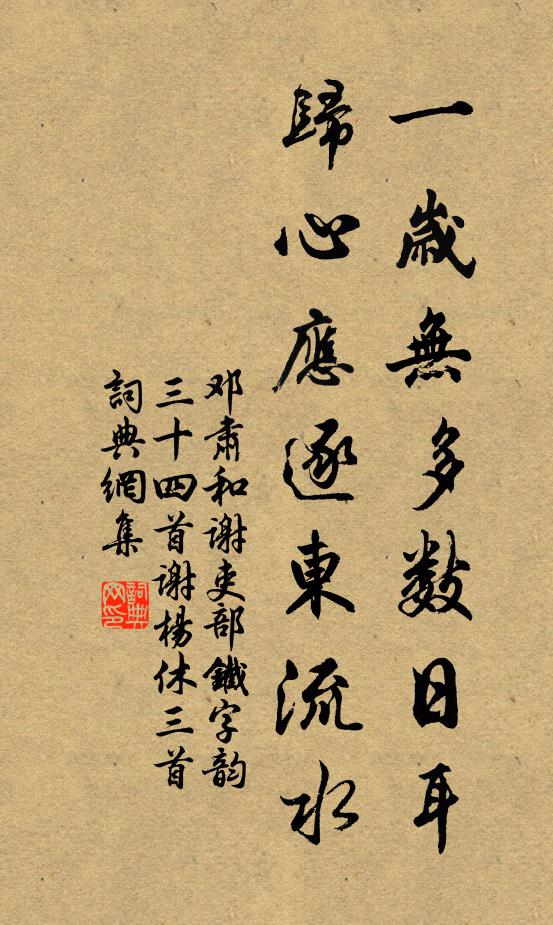 一歲無多數日耳
歸心應逐東流水
邓肅和谢吏部鐵字韵
三十四首谢楊休三首
詞典網集
詞典网印